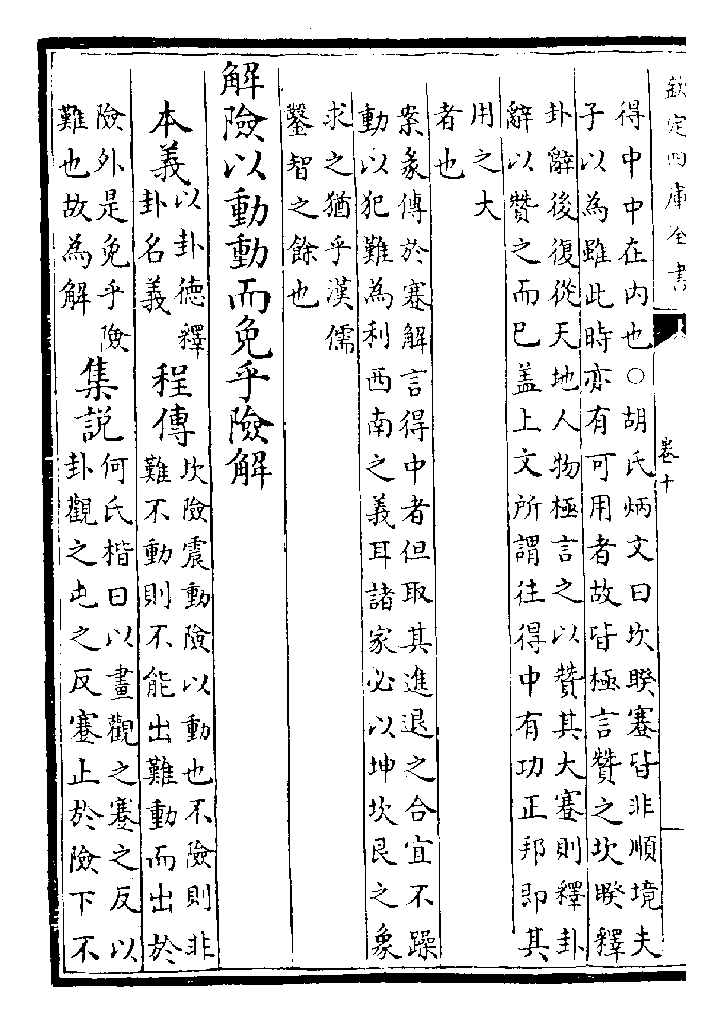 欽定四庫全書
卷十
得中中在内也○胡氏炳文曰坎睽蹇皆非順境夫
子以為雖此時亦有可用者故皆極言贊之坎睽釋
卦辭後復從天地人物極言之以贊其大蹇則釋卦
辭以贊之而已盖上文所謂往得中有功正邦即其
用之大
者也
案彖傳於蹇解言得中者但取其進退之合宜不躁
動以犯難為利西南之義耳諸家必以坤坎艮之象
求之猶乎漢儒
鑿智之餘也
解險以動動而免乎險解
本義
以卦德釋
卦名義
程傳
坎險震動險以動也不險則非
難不動則不能出難動而出於
險外是免乎險
難也故為解
集說
何氏楷曰以畫觀之蹇之反以
卦觀之屯之反蹇止於險下不